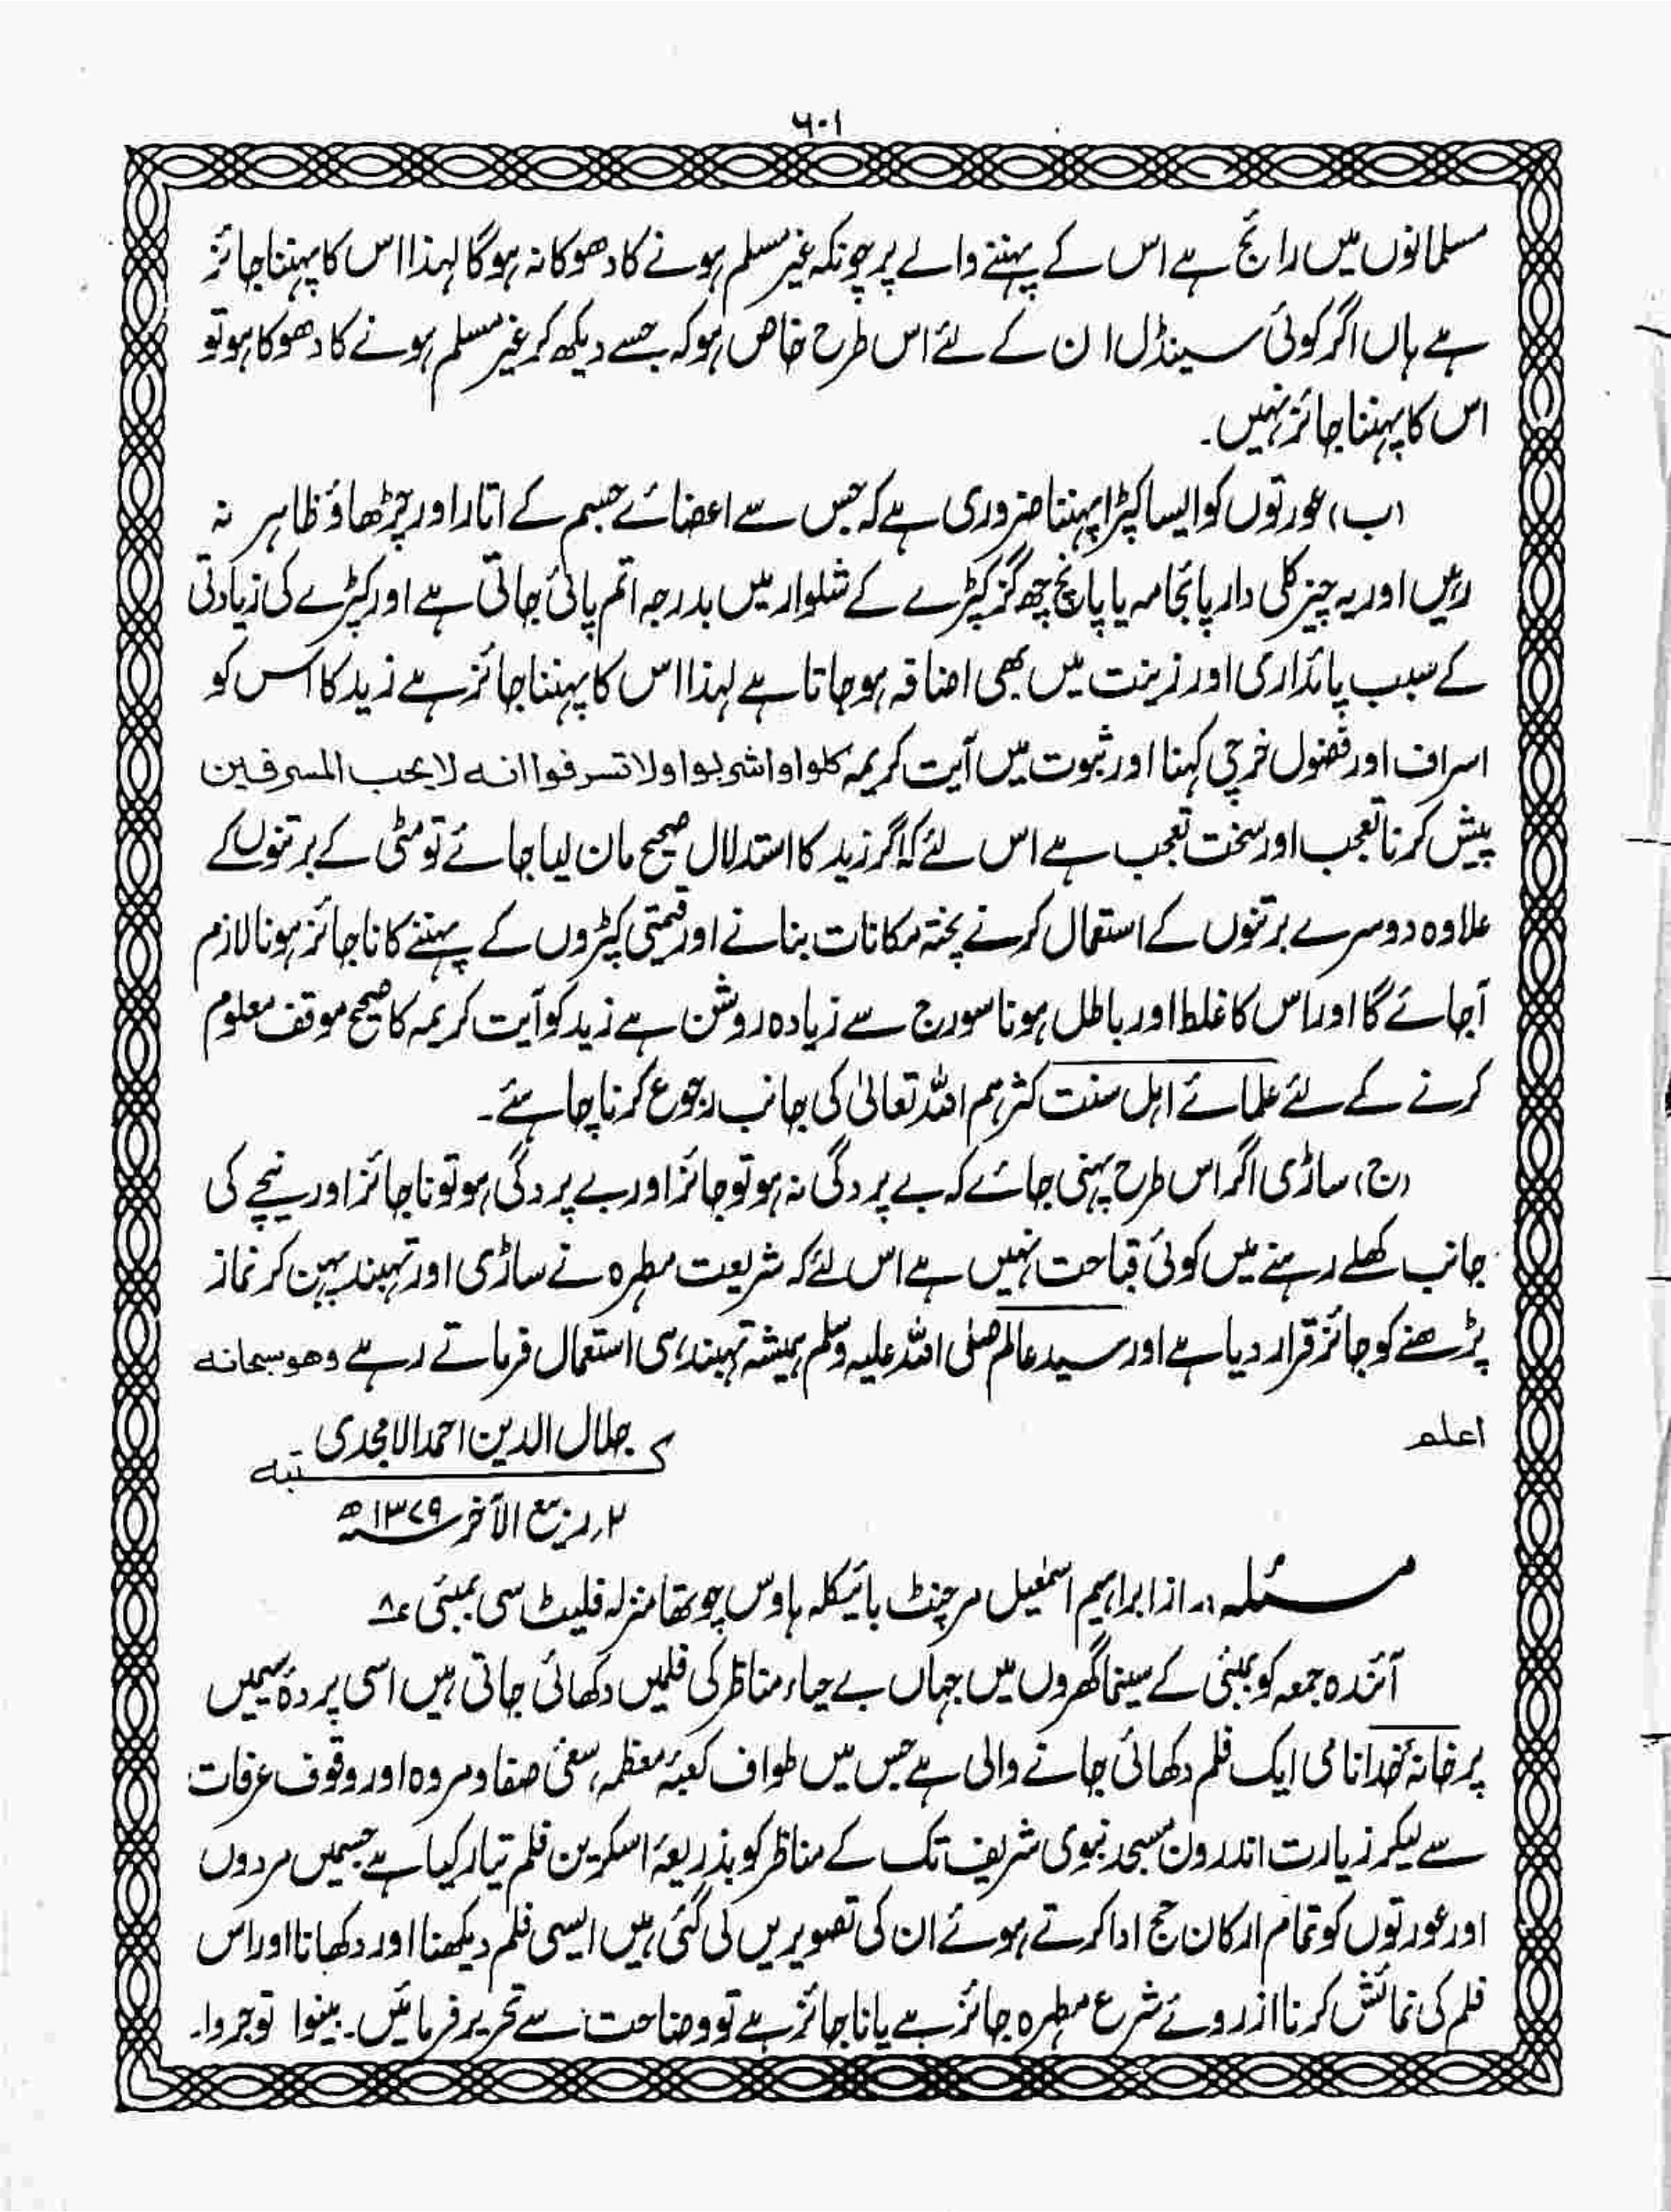 ۶۰۱
مسلمانوں میں رائج ہے اس کے پہننے والے پر چونکہ غیر مسلم ہونے کا دھوکا نہ ہوگا لہذا اس کا پہننا جائز
ہے ہاں اگر کوئی سینڈل ان کے لئے اس طرح خاص ہو کہ جسے دیکھ کر غیر مسلم ہونے کا دھوکا ہو تو
اس کا پہننا جائز نہیں۔
(ب) عورتوں کو ایسا کپڑا پہننا ضروری ہے کہ جس سے اعضائے جسم کے اتار اور چڑھاؤ ظاہر نہ
رہیں اور یہ چیز کلی دار پائجامہ یا پانچ چھ گز کپڑے کے شلوار میں بدرجہ اتم پائی جاتی ہے اور کپڑے کی زیادتی
کے سبب پائداری اور زینت میں بھی اضافہ ہو جاتا ہے لہذا اس کا پہننا جائز ہے زید کا اس کو
اسراف اور فضول خرچی کہنا اور ثبوت میں آیت کریمہ کلوا واشربوا ولا تسرفوا انه لا یحب المسرفین
پیش کرنا تعجب اور سخت تعجب ہے اس لئے کہ اگر زید کا استدلال صحیح مان لیا جائے تو مٹی کے برتنوں کے
علاوہ دوسرے برتنوں کے استعمال کرنے پختہ مکانات بنانے اور قیمتی کپڑوں کے پہننے کا ناجائز ہونا لازم
آجائے گا اور اس کا غلط اور باطل ہونا سورج سے زیادہ روشن ہے زید کو آیت کریمہ کا صحیح موقف معلوم
کرنے کے لئے علمائے اہل سنت کثرہم اللہ تعالیٰ کی جانب رجوع کرنا چاہئے۔
(ج) ساڑی اگر اس طرح پہنی جائے کہ بے پردگی نہ ہو تو جائز اور بے پردگی ہو تو ناجائز اور نیچے کی
جانب کھلے رہنے میں کوئی قباحت نہیں ہے اس لئے کہ شریعت مطہرہ نے ساڑی اور تہبند پہن کر نماز
پڑھنے کو جائز قرار دیا ہے اور سید عالم صلی اللہ علیہ وسلم ہمیشہ تہبند ہی استعمال فرماتے رہے وھو سبحانه
اعلم
جلال الدین احمد الامجدی
کتبه
۲؍ ربیع الآخر ۱۳۷۹ھ
مسئلہ:۔ از ابراہیم اسمٰعیل مرچنٹ بائیکلہ ہاوس چوتھا منزلہ فلیٹ سی بمبئی ۸
آئندہ جمعہ کو بمبئی کے سینما گھروں میں جہاں بے حیاء مناظر کی فلمیں دکھائی جاتی ہیں اسی پردۂ سیمیں
پر خانۂ خدا نامی ایک فلم دکھائی جانے والی ہے جس میں طواف کعبۂ معظمہ، سعئ صفا و مروہ اور وقوف عرفات
سے لیکر زیارت اندرون مسجد نبوی شریف تک کے مناظر کو بذریعۂ اسکرین فلم تیار کیا ہے جسمیں مردوں
اور عورتوں کو تمام ارکان حج ادا کرتے ہوئے ان کی تصویریں لی گئی ہیں ایسی فلم دیکھنا اور دکھانا اور اس
فلم کی نمائش کرنا از روئے شرع مطہرہ جائز ہے یا ناجائز ہے تو وضاحت سے تحریر فرمائیں۔ بینوا توجروا۔